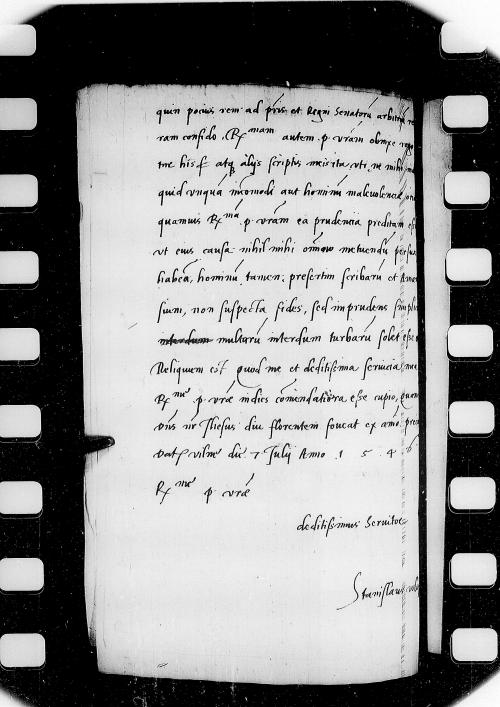 quin pocius rem ad pris et Regni Senatorū arbitriū re
ram confido. Rx mam autem p. vrām obnixe rogo
tne his atq alijs scriptis meis ita uti, ne mihi
quid unquā incomodi aut hominū malevolenciæ
quamuis Rx mā p. vram ea prudencia preditam esse
ut eius causa nihil mihi omnino metuendū per
habeā, hominū tamen, presertim scribarū et
sium, non suspecta fides, sed imprudens simplici
interdum multarū interdum turbarū solet esse
Reliquum est quod me et deditissima seruicia mea
Rx me p. vræ indies comendatiora esse cupio, quam
Dns nr Jhesus diu florentem foueat ex amō. pre
Dat Vilne die 7 Julij Anno 1 5 4 6
Rx me p vræ
deditissimus Seruitor
Stanislaus